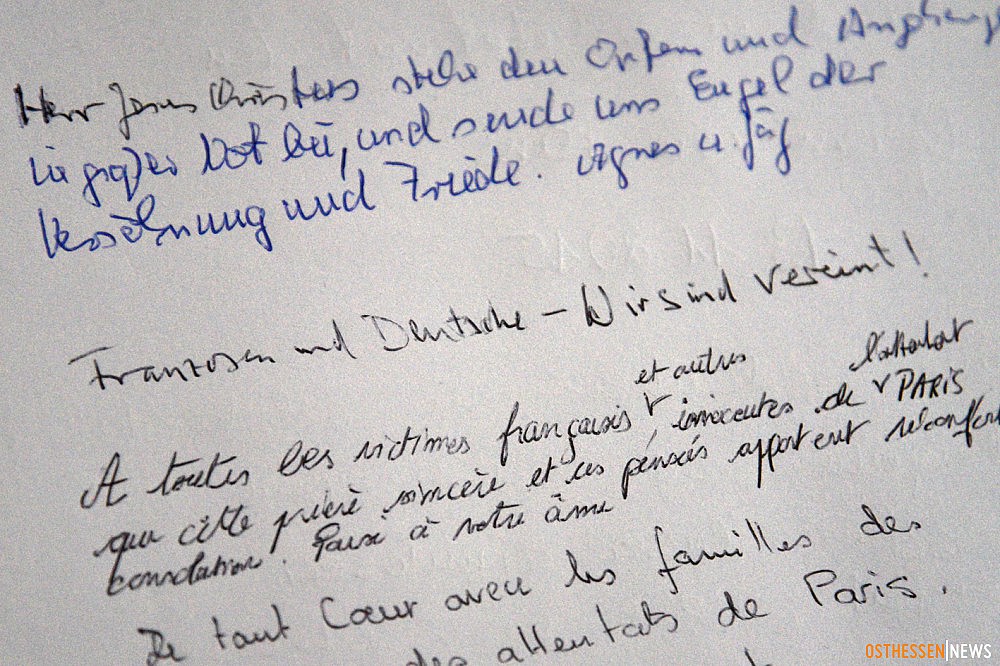 Herr Jesus Christus stehe den Opfern und Angehörig
in großer Not bei, und sende uns Engel der
Versöhnung und Friede. Agnes u. Jörg
Franzosen und Deutsche – Wir sind vereint!
et autres l'attentat
A toutes les victimes français, innocentes de PARIS
que cette prière sincère et ces pensées apportent réconfort
consolation. Paix à votre âme
De tout Cœur avec les familles des
des attentats de Paris.
OSTHESSEN|NEWS